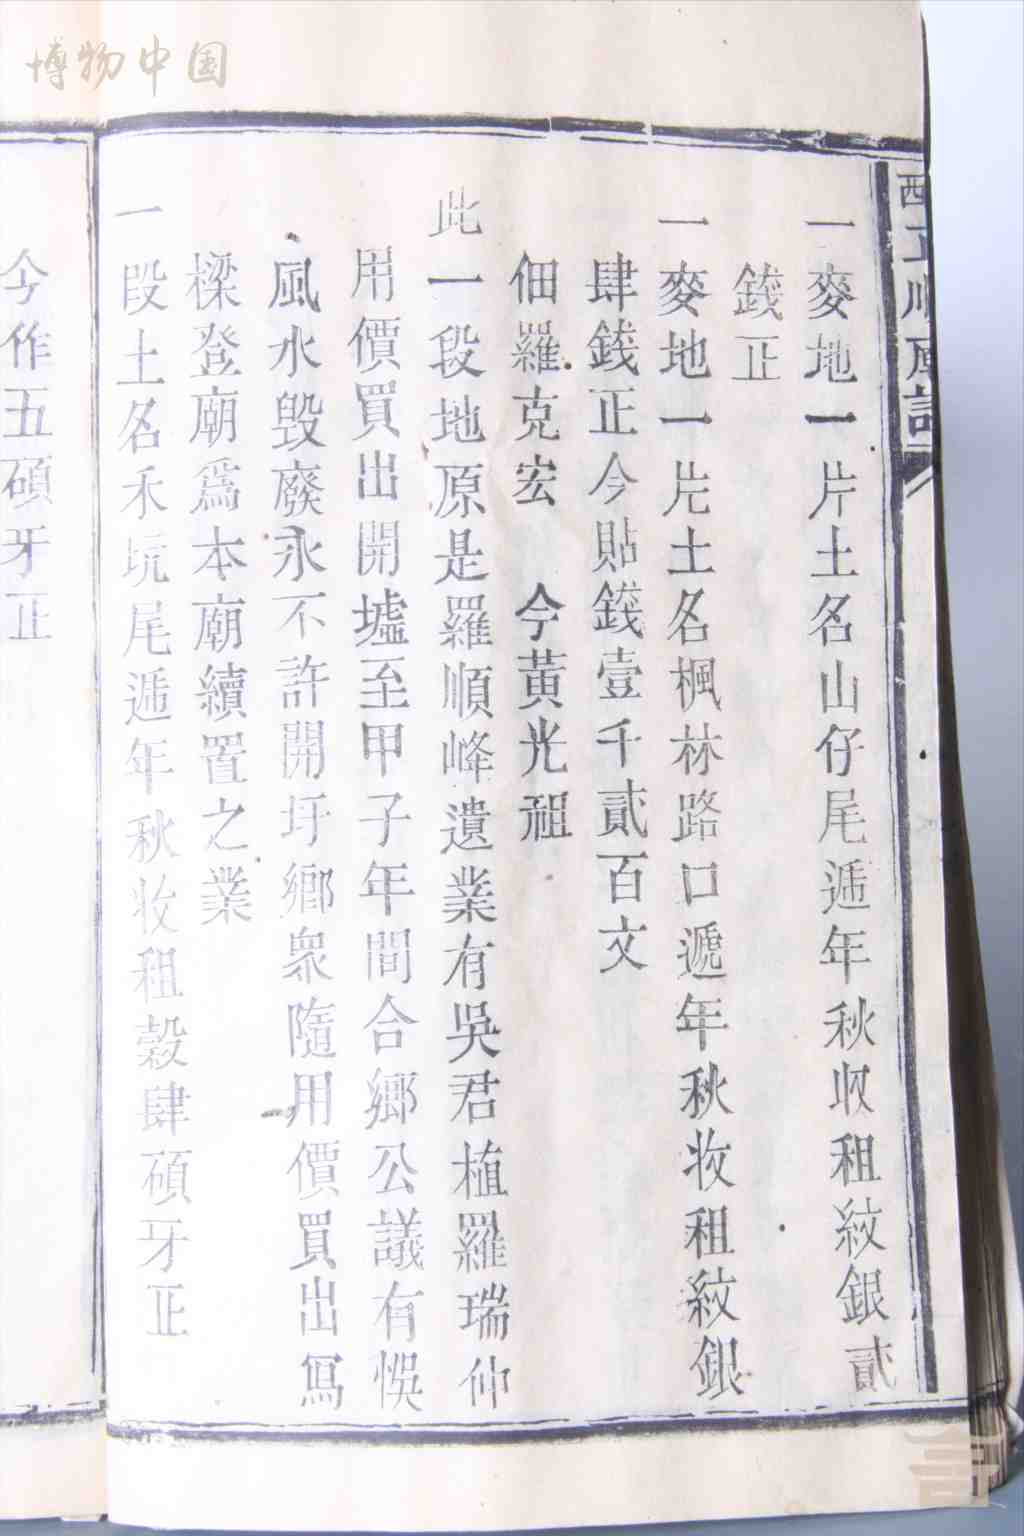 博物中国
一麥地一片土名山仔尾遞年秋収租紋銀貳
錢正
一麥地一片土名楓林路口遞年秋收租紋銀
肆錢正今貼錢壹千貳百文
佃羅克宏　今黃光祖
此一段地原是羅順峰遺業有吳君植羅瑞仲
用價買出開墟至甲子年間合鄉公議有悞
風水毀廢永不許開圩鄉衆隨用價買出冩
樑登廟爲本廟續置之業
一段土名禾坑尾遞年秋收租穀肆碩牙正
今作五碩牙正